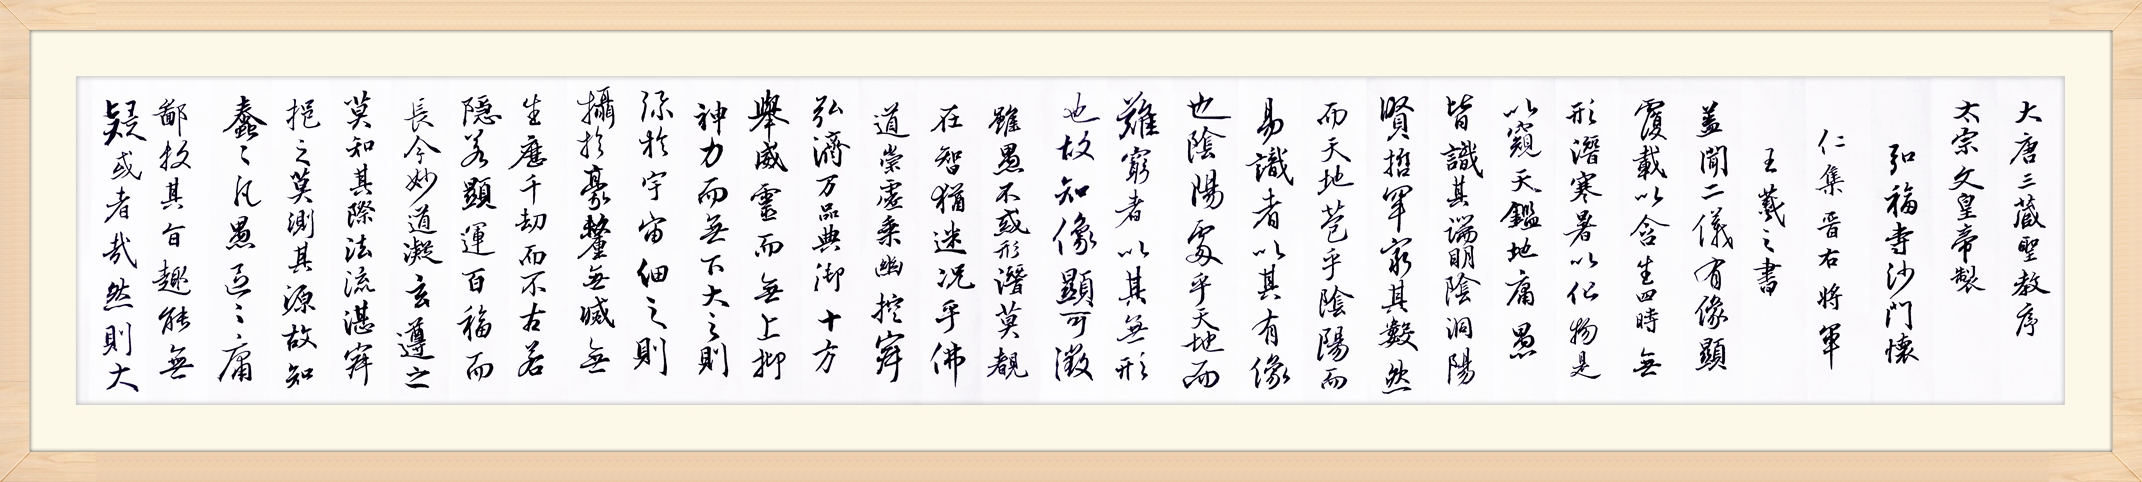 大唐三藏聖教序
太宗文皇帝製
弘福寺沙門懷
仁集晉右將軍
王羲之書
蓋聞二儀有像顯
覆載以含生四時無
形潛寒暑以化物是
以窺天鑑地庸愚
皆識其端明陰洞陽
賢哲罕窮其數然
而天地苞乎陰陽而
易識者以其有像
也陰陽處乎天地而
難窮者以其無形
也故知像顯可徵
雖愚不惑形潛莫覩
在智猶迷况乎佛
道崇虛乘幽控寂
弘濟万品典御十方
舉威靈而無上抑
神力而無下大之則
弥於宇宙細之則
攝於豪釐無滅無
生歷千劫而不古若
隱若顯運百福而
長今妙道凝玄遵之
莫知其際法流湛寂
挹之莫測其源故知
蠢〻凡愚區〻庸
鄙投其旨趣能無
疑或者哉然則大